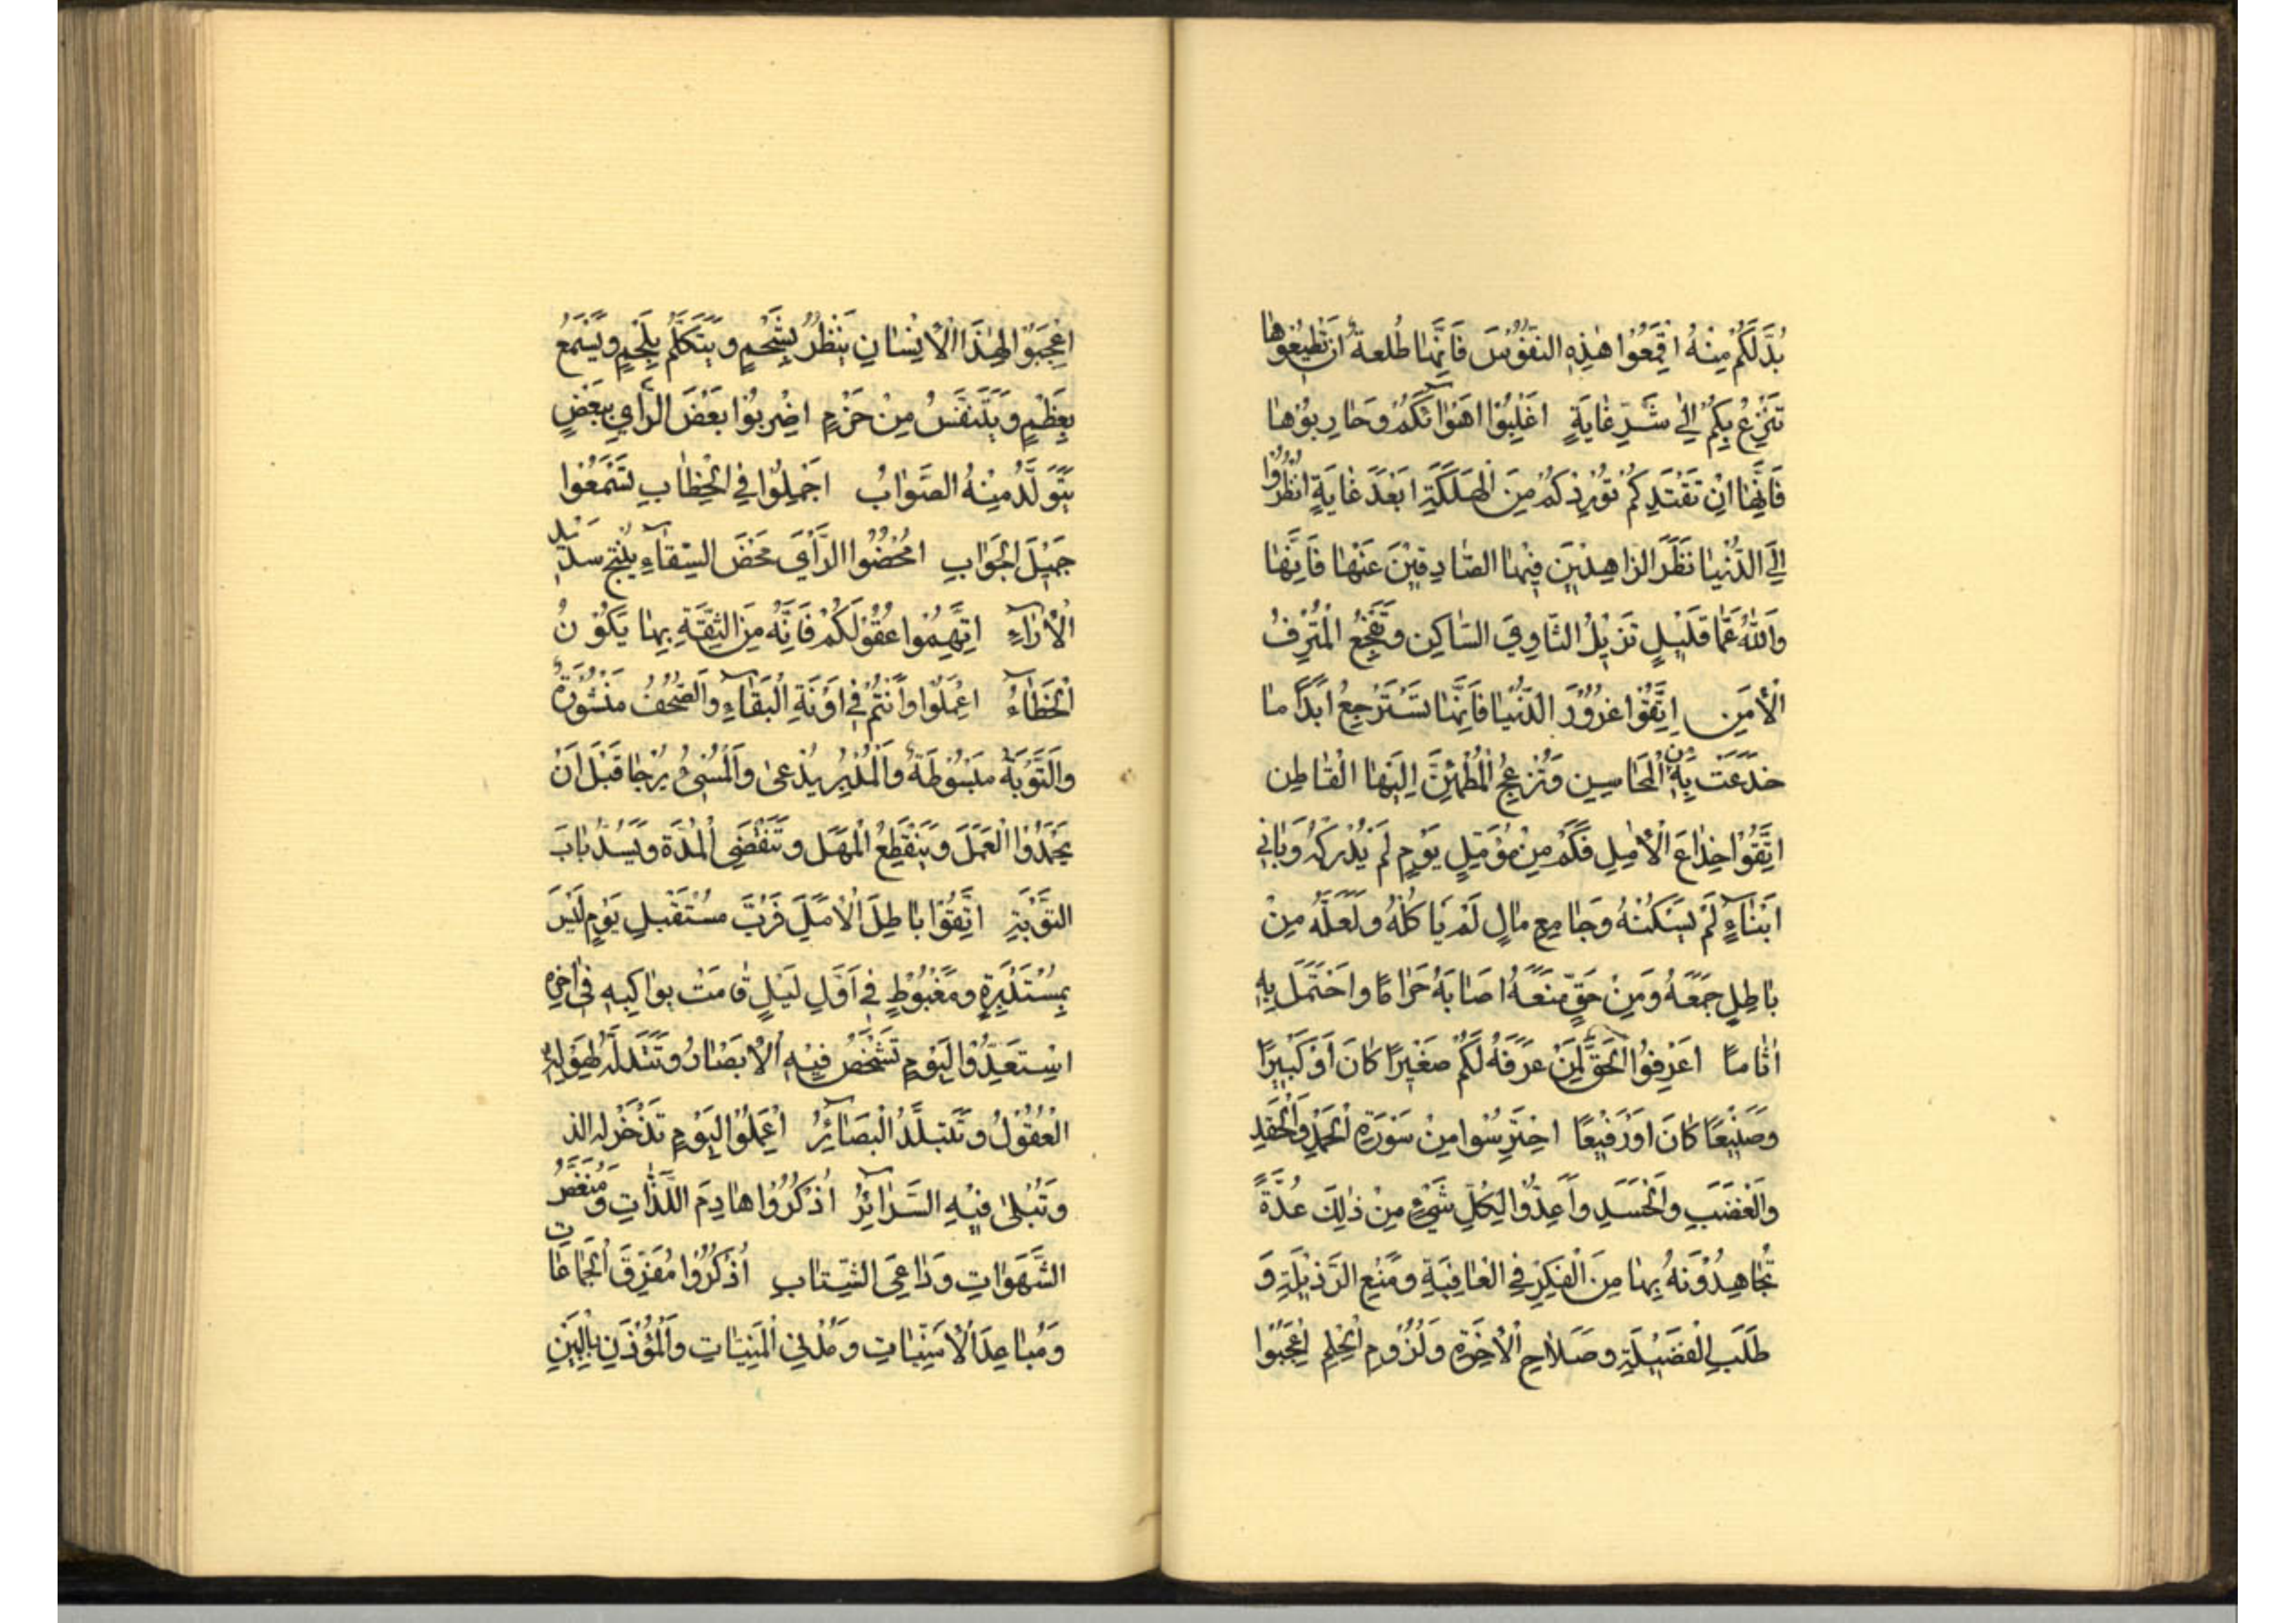 بُدَّ لَكُمْ مِنْهُ اقْمَعُوا هٰذِهِ النُّفُوسَ فَاِنَّهٰا طُلعةٌ اِنْ تُطِيعُوهٰا
تَنْزِعْ بِكُمْ اِلٰى شَرِّ غٰايَةٍ اغْلِبُوا اهْوٰائَكُمْ وَحٰارِبُوهٰا
فَاِنَّهٰا اِنْ تَقْتَدِكُمْ تُورِدْكُمْ مِنَ الْهَلَكَةِ ابْعَدَ غٰايَةٍ انْظُرُوا
اِلَى الدُّنْيٰا نَظَرَ الزاهِدينَ فيهٰا الصّٰادِقينَ عَنْهٰا فَاِنَّهٰا
وَاللّٰهُ عَمّٰا قَليلٍ تُزيلُ الثّٰاوِيَ السّٰاكِنَ وَتُفْجِعُ الْمُتْرِفُ
الْأمَنِ اِتَّقُوا غُرُورَ الدُّنْيٰا فَاِنَّهٰا تَسْتَرْجِعُ ابَدًا مٰا
خَدَعَتْ بِهِ مِنَ الْمَحٰاسِنِ وَتُزْعِجُ الْمُطْمَئِنَّ اِلَيْهَا الْقٰاطِن
اتَّقُوا خِدٰاعَ الْأمٰلِ فَكَمْ مِنْ مُؤَمِّلٍ يَوْمٍ لَمْ يُدْرِكْهُ وَبٰانِي
ابْنٰاءٍ لَمْ يَسْكُنْهُ وَجٰامِعِ مٰالٍ لَمْ يَاكُلْهُ وَلَعَلَّهُ مِنْ
بٰاطِلٍ جَمَعَهُ وَمِنْ حَقٍّ مَنَعَهُ اصٰابَهُ حَرٰامًا وَاحْتَمَلَ بِهِ
اٰثٰامًا اعْرِفُوا الْحَقَّ لِمَنْ عَرَفَهُ لَكُمْ صَغيرًا كٰانَ اَوْ كَبيرًا
وَضيعًا كٰانَ اَوْ رَفيعًا احْتَرِسُوا مِنْ سَوْرَةِ الْحَمْدِ وَالْحِقْدِ
وَالْغَضَبِ وَالْحَسَدِ وَاَعِدُّوا لِكُلِّ شَيْءٍ مِنْ ذٰلِكَ عُدَّةً
تُجٰاهِدُونَهُ بِهٰا مِنَ الْفِكْرِ فِي الْعٰاقِبَةِ وَمَنْعِ الرَّذيلَةِ وَ
طَلَبِ الْفَضيلَةِ وَصَلاٰحِ الْأخِرَةِ وَلُزُومِ الْحِلْمِ اعْجَبُوا
اعْجَبُوا لِهٰذَا الْإنْسٰانِ يَنْظُرُ بِشَحْمٍ وَيَتَكَلَّمُ بِلَحْمٍ وَيَسْمَعُ
بِعَظْمٍ وَيَتَنَفَّسُ مِنْ خَرْمٍ اضْرِبُوا بَعْضَ الرَّأيِ بِبَعْضٍ
يَتَوَلَّدُ مِنْهُ الصَّوٰابُ اجْمِلُوا فِي الْخِطٰابِ تَسْمَعُوا
جَميلَ الْجَوٰابِ امْخُضُوا الرَّأيَ مَخْضَ السِّقٰاءِ يُنْتِجْ سَديدَ
الْأرٰاءِ اتَّهِمُوا عُقُولَكُمْ فَاِنَّهُ مِنَ الثِّقَةِ بِهٰا يَكُونُ
الْخَطٰاءُ اعْمَلُوا وَاَنْتُمْ فِي اوْنَةِ الْبَقٰاءِ وَالصُّحُفُ مَنْشُورَةٌ
وَالتَّوْبَةُ مَبْسُوطَةٌ وَالْمُدْبِرُ يُدْعىٰ وَالْمُسِيءُ يُرْجٰا قَبْلَ اَنْ
يَخْمُدَ الْعَمَلُ وَيَنْقَطِعُ الْمَهَلُ وَتَنْقَضِى الْمُدَّةُ وَيُسَدُّ بٰابَ
التَّوْبَةِ اتَّقُوا بٰاطِلَ الْأمَلِ فَرُبَّ مُسْتَقْبِلِ يَوْمٍ لَيْسَ
بِمُسْتَدْبِرِهِ وَمَغْبُوطٍ فِي اَوَّلِ لَيْلٍ قٰامَتْ بَوٰاكِيهِ فِي اٰخِرِهِ
اسْتَعِدُّوا لِيَوْمٍ تَشْخَصُ فيهِ الْأبْصٰارُ وَتَتَدَلَّهُ لِهَوْلِهِ
الْعُقُولُ وَتَتَبَلَّدُ الْبَصٰائِرُ اعْمَلُوا لِيَوْمٍ تُذْخَرُ لَهُ الذ
وَتُبْلىٰ فيهِ السَّرٰائِرُ اُذْكُرُوا هٰادِمَ اللَّذّٰاتِ وَمُنَغِّصَ
الشَّهَوٰاتِ وَدٰاعِيَ الشَّتٰاتِ اُذْكُرُوا مُفَرِّقَ الْجَمٰاعٰاتِ
وَمُبٰاعِدَ الْأمْنِيّٰاتِ وَمُدْنِيَ الْمَنِيّٰاتِ وَالْمُؤْذَنِ بِالْبَيْنِ